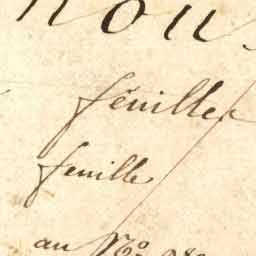 nou
feuille
feuille
au N.º